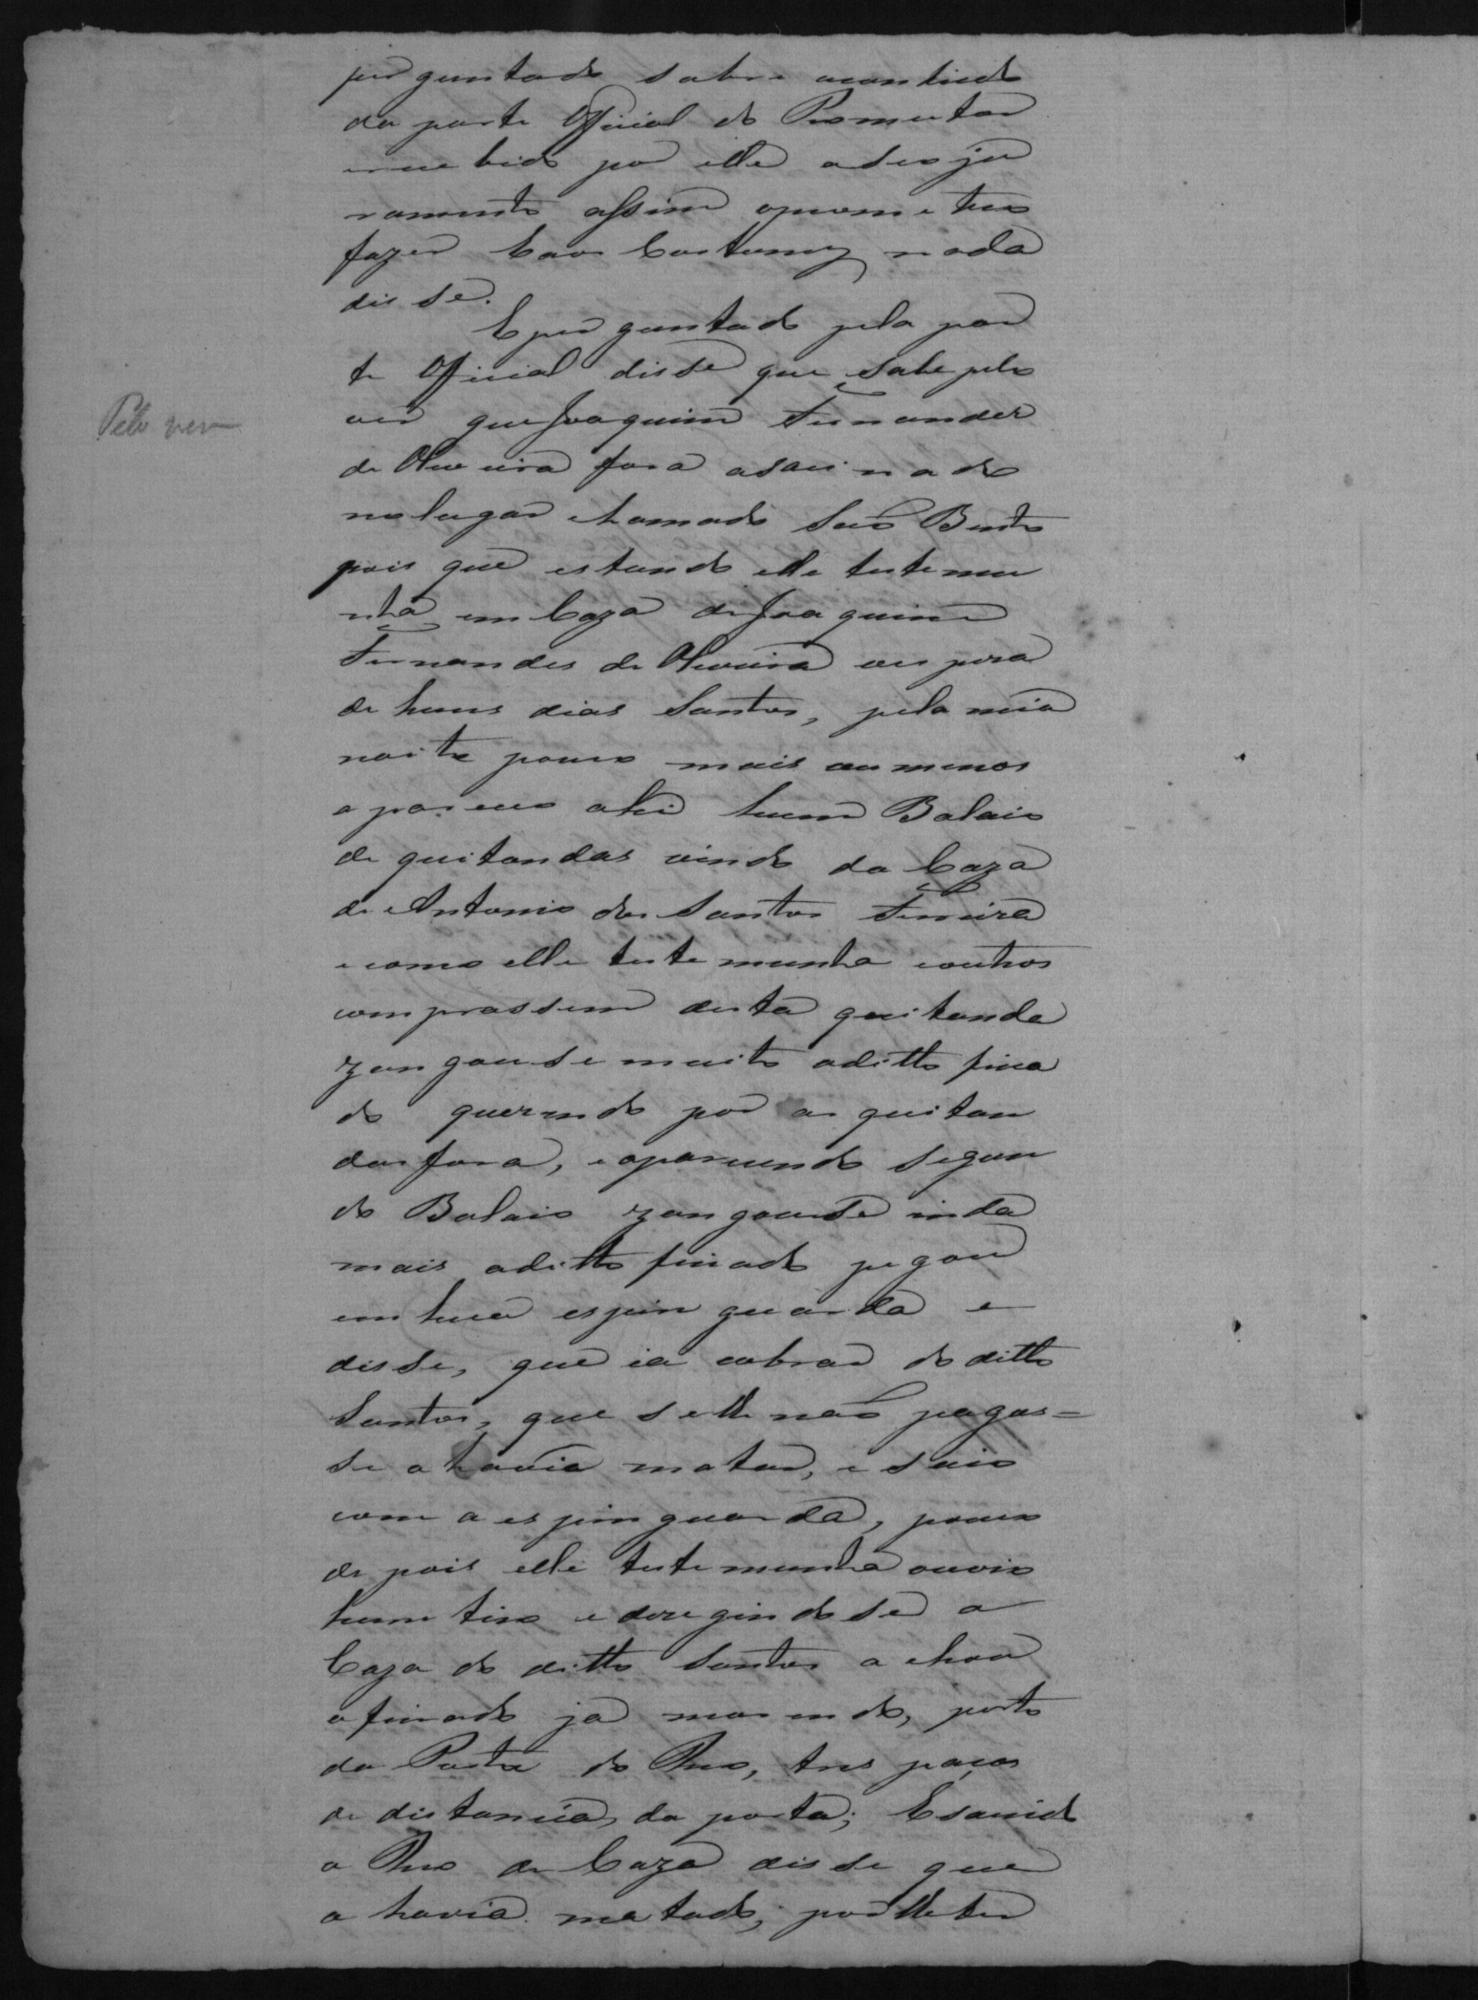 perguntado sobre ocontiudo
da parte Official do Promutor
ercuebido por elle o seo ju
ramento assim oprometeu
fazer Eaos Costumes nada
disse.
Eper guntado pela par
te Official disse que Sabe pelo
Pelo ver
ver que Joaquim Fernandes
de Oliveira fora asacinado
no lugar chamado Saõ Bento
pois que estando elle testemu
nha em Caza de Joaquim
Fernandes de Oliveira vespora
de huns dias Santos, pela meia
noite pouco mais ou menos
apareceo ahi hum Balaio
de quitandas vindo da Caza
de Antonio dos Santos Ferreira
ecomo elle testemunha eoutros
comprassem desta quitanda
zangouse muito odicto fina
do querendo por as quitan
das fora, eaparecendo Segun
do Balaio zangouse inda
mais oditto finado pegou
em hua espinguarda e
disse, que ia cobrar do ditto
Santos, que se elle naõ pagas=
se o havia matar, e saio
com a espinguarda, pouco
depois elle testemunha ouvio
hum tiro e deregindose a
Caza do ditto Santos achou
ofinado ja morendo, perto
da Porta do Reo, tres paços
de distancia da porta; Esaindo
o Reo de Caza disse que
o havia matado, por lhe ter